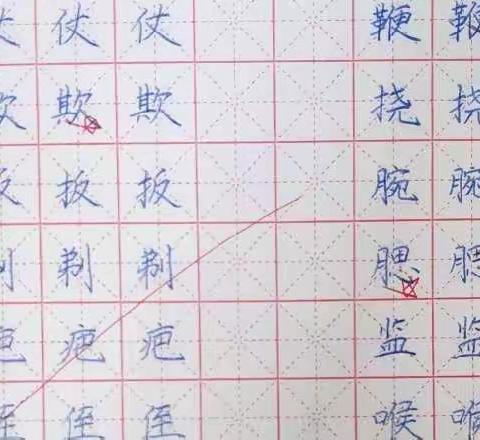 仗 仗 仗 鞭 鞭
欺 欺 欺 挠 挠
扳 扳 扳 腕 腕
剃 剃 剃 腮 腮
疤 疤 疤 监 监
侄 侄 侄 喉 喉